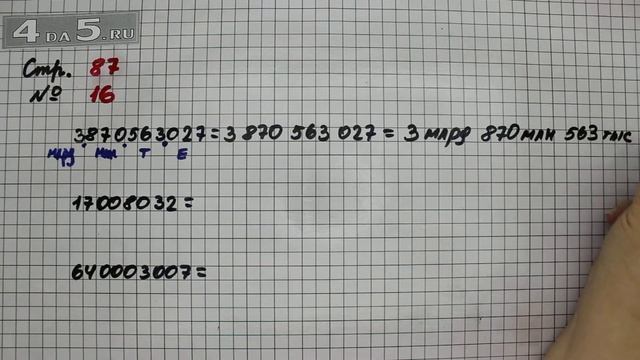 4 DA 5.RU
Стр. 87
№ 16
3870563027 = 3 870 563 027 = 3 млрд 870 млн 563 тыс
млрд млн Т Е
17008032 =
640003007 =